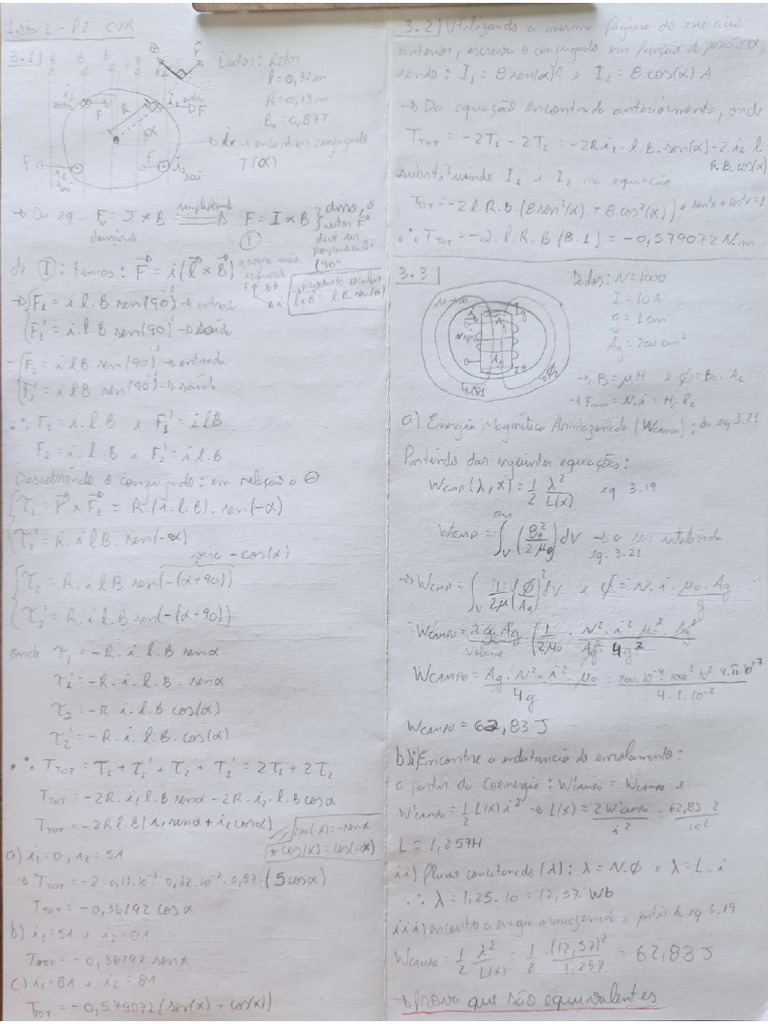 Lista 2 - P2 - CVR
3.1)
Dados: Rotor
l = 0,32m
R = 0,13m
B₀ = 0,87T
encontrar conjugado
T(α)
→ Da eq. F = J x B simplificando F = I x B } disso, o
vetor F
deve ser
perpendicular
(90°
densidade
①
de ①: temos: F = i(l x B)
l x B = l B. sen(θ)
→ { F₁ = i l. B sen(90) → entrada
F₁' = i l. B sen(90) → saída
- { F₂ = i l B sen(90) → entrada
F₂' = i l B sen(90) → saída
∴ F₁ = i. l. B e F₁' = i l B
F₂ = i. l. B e F₂' = i l. B
Descobrindo o conjugado: em relação a Θ
{ τ₁ = r x F₁ = R.(i. l. B). sen(-α)
τ₁' = R. i l B sen(-α)
- cos(α)
{ τ₂ = R. i l B sen(-(α+90))
τ₂' = R. i l B sen(-(α+90))
onde τ₁ = -R. i. l. B senα
τ₁' = -R. i. l. B. senα
τ₂ = -R. i. l. B cos(α)
τ₂' = -R. i. l. B. cos(α)
∴ T_TOT = τ₁ + τ₁' + τ₂ + τ₂' = 2τ₁ + 2τ₂
T_TOT = -2R. i₁ l. B senα - 2R. i₂. l. B cosα
T_TOT = -2R l. B (i₁ senα + i₂ cosα)
sen(-x) = -senx
* cos(x) = cos(-x)
a) i₁ = 0, i₂ = 5A
T_TOT = -2 . 0,13.10⁻² . 0,32.10⁻² . 0,87 . (5 cosα)
T_TOT = -0,36192 cosα
b) i₁ = 5A e i₂ = 0A
T_TOT = -0,36192 senα
c) i₁ = 8A e i₂ = 8A
T_TOT = -0,579072 (sen(α) + cos(α))
3.2) Utilizando a mesma figura do exercício
anterior, escreva o conjugado em função da posição α,
sendo: I₁ = 8 sen(α) A e I₂ = 8 cos(α) A
→ Da equação encontrada anteriormente, onde
T_TOT = -2T₁ - 2T₂ = -2R i₁. l. B. sen(α) - 2. i₂ l
R.B. cos(α)
substituindo I₁ e I₂ na equação
T_TOT = -2 l. R. B (8 sen²(α) + 8 cos²(α)) sen²x + cos²x = 1
∴ T_TOT = -2. l. R. B (8.1) = -0,579072 N.m
3.3)
Dados: N = 1000
I = 10A
g = 1cm
Ag = 200cm²
→ B = μH e φ = Bc. Ac
→ Fmm = N. i = Hc. lc
a) Energia Magnética Armazenada (Wcampo): da eq 3.21
Partindo das seguintes equações:
Wcmp(λ, x) = 1/2 λ²/L(x) eq 3.19
ou
Wcmp = ∫_V (B²/2μ) dV → a ser utilizada
eq. 3.21
→ Wcmp = ∫_V 1/2μ (φ/Ag)² dV e φ = N. i. μ₀. Ag / g
∴ Wcampo = 2 g. Ag (1/2μ₀ . N². i² μ₀² Ag² / Ag² 4g²
volume
Wcampo = Ag. N². i². μ₀ / 4g = 200.10⁻⁴ . 1000² . 10² . 4.π.10⁻⁷ / 4. 1. 10⁻²
Wcampo = 62,83 J
b) i) Encontre a indutancia do enrolamento:
a partir da Coenergia: W'campo = Wcampo e
W'campo = 1/2 L(x) i² → L(x) = 2 W'campo / i² = 62,83 2 / 10²
L = 1,257H
ii) fluxo concatenado (λ): λ = N.φ e λ = L. i
∴ λ = 1,25. 10 = 12,57 Wb
iii) encontre a energia armazenada a partir da eq 3.19
Wcampo = 1/2 λ²/L(x) = 1/2 . (12,57)²/1,257 = 62,83 J
→ prova que são equivalentes